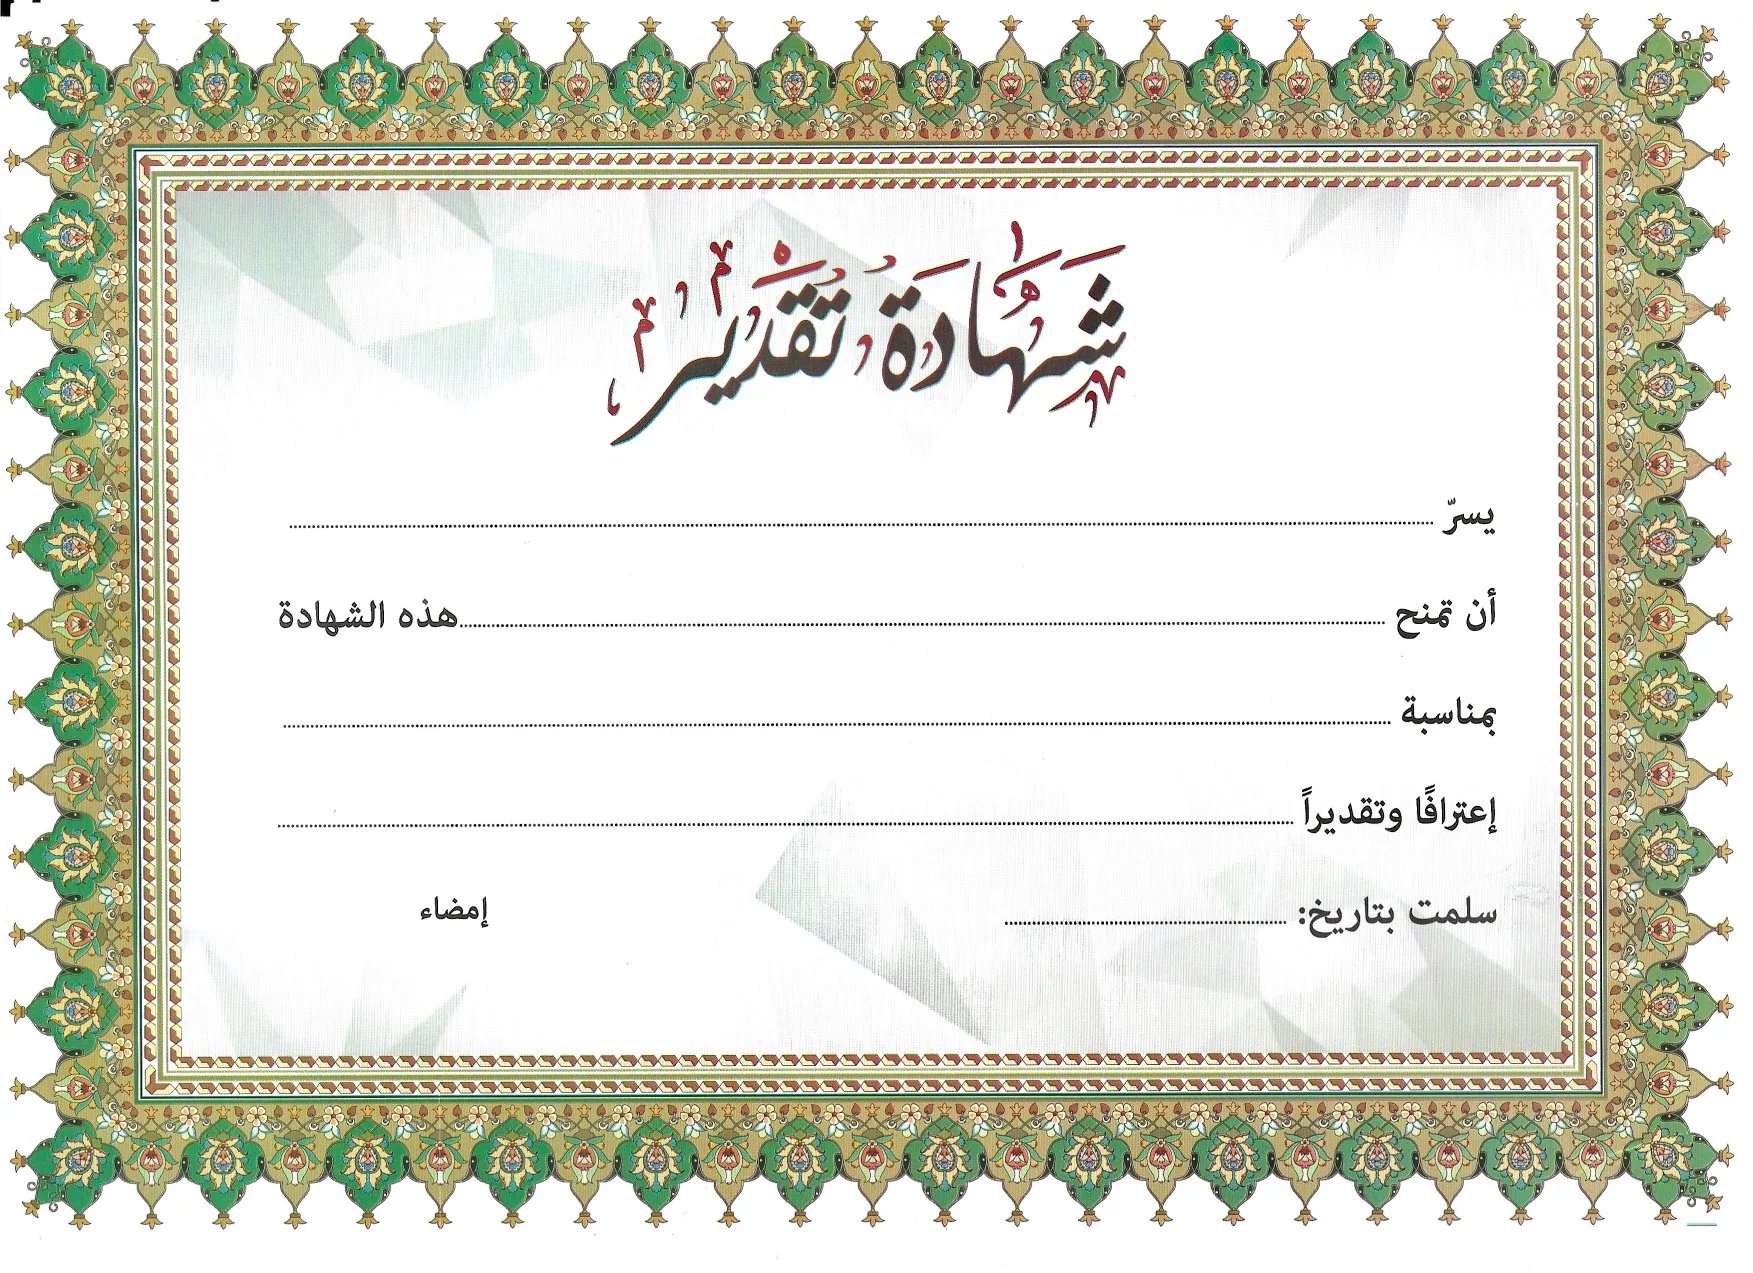 شهادة تقدير
يسرّ ........................................
أن تمنح ........................................ هذه الشهادة
بمناسبة ........................................
إعترافًا وتقديراً ........................................
سلمت بتاريخ: .................... إمضاء